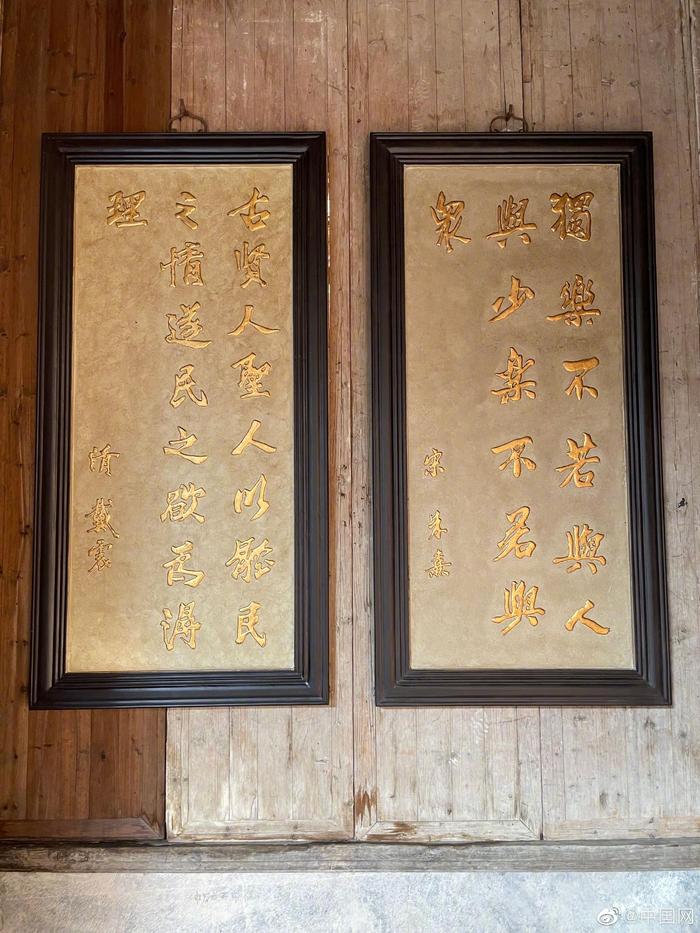 獨樂不若與人
與少樂不若與
衆
宋 朱熹
古賢人聖人以體民
之情遂民之欲為得
理
清 戴震
@中国网